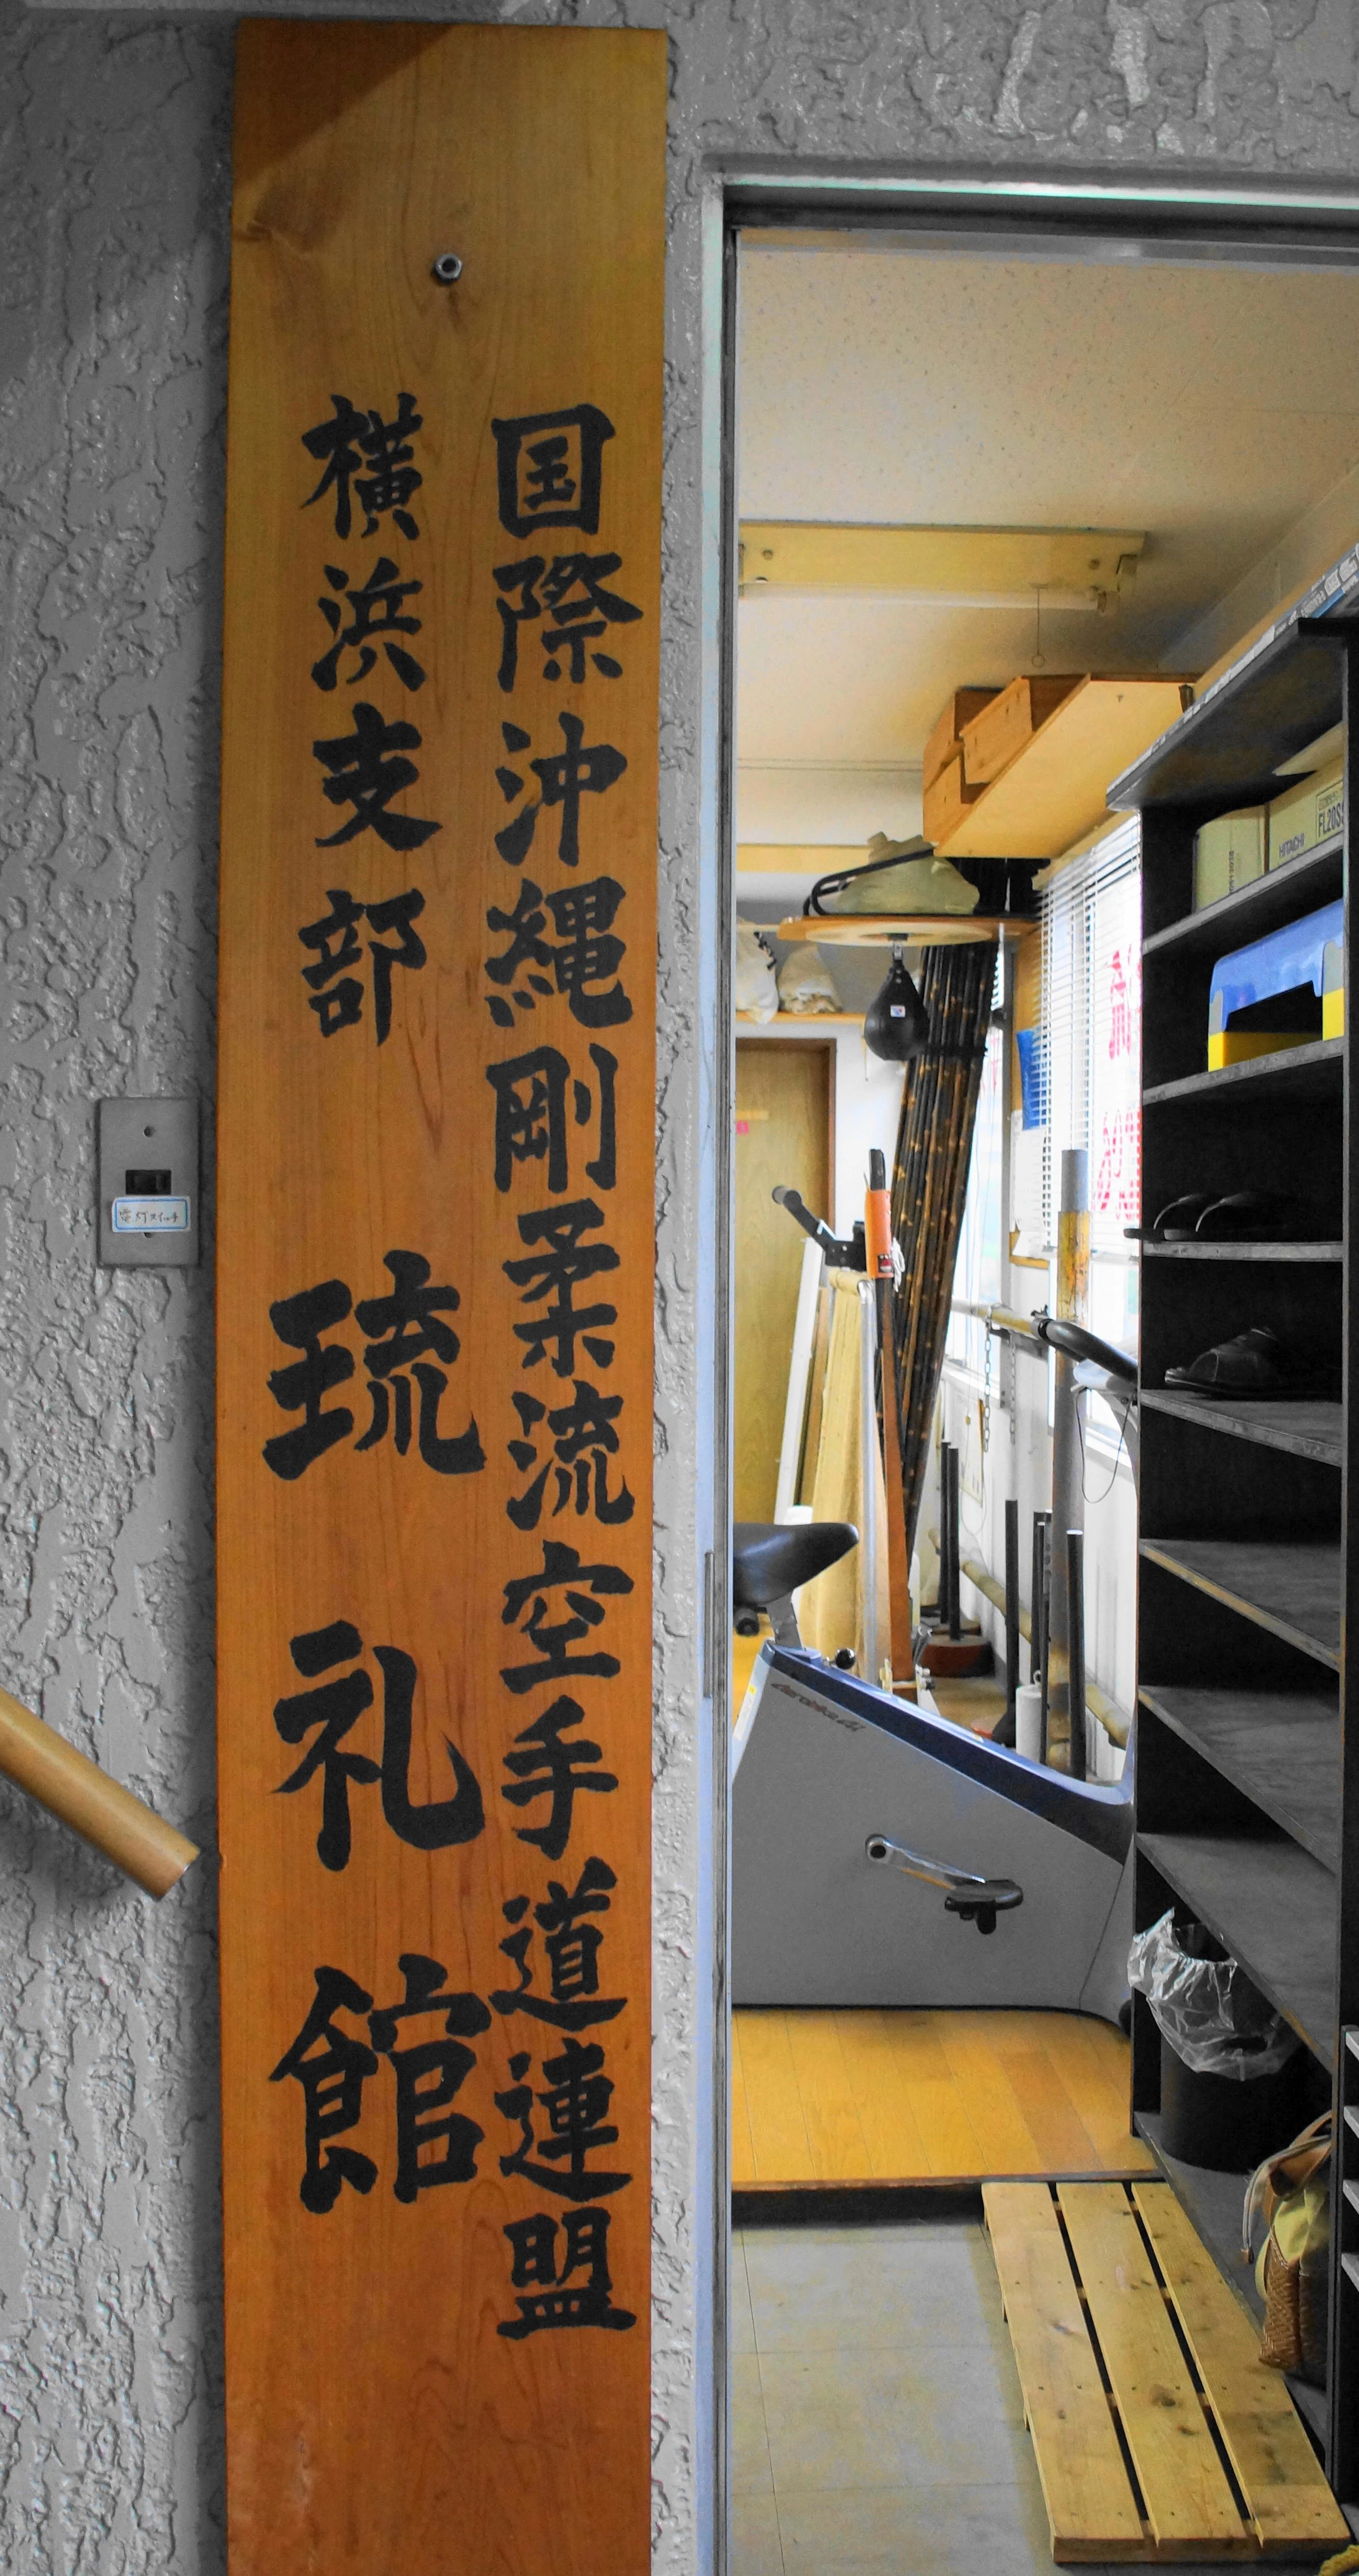 国際沖縄剛柔流空手道連盟
横浜支部 琉礼館
電灯スイッチ
HITACHI
FL20SS
aerobike